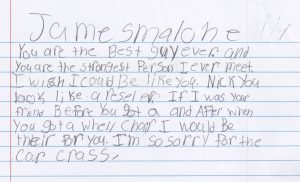 James malone
You are the Best guy ever and
You are the strongest Person I ever meet
I wish I could Be like you. Nick You
look like a reseler If I was your
friend Before You got a and After when
You got a wheel Chair I would Be
their for you. I'm so sorry for the
Car crass.